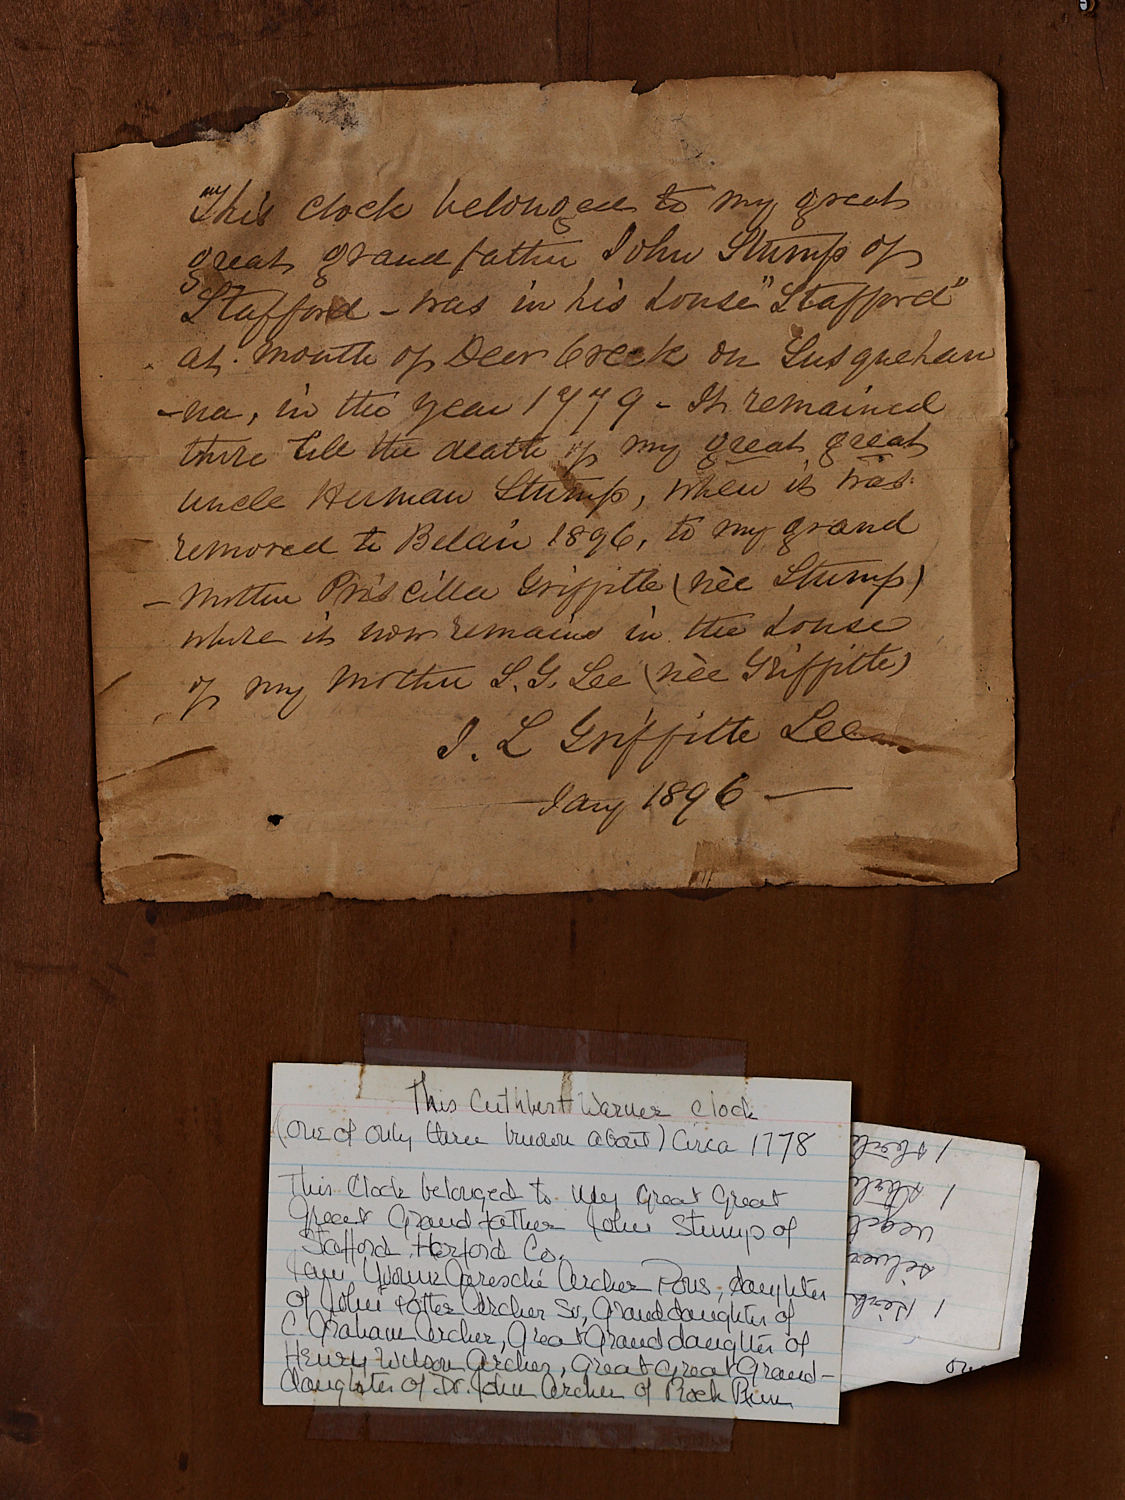 This clock belonged to my great
great grandfather John Stump of
Stafford - was in his house "Stafford"
at mouth of Deer Creek on Susquehan
-na, in the year 1779 - It remained
there till the death of my great great
uncle Herman Stump, when it was
removed to Belair 1896, to my grand
- mother Priscilla Griffith (nèe Stump)
where it now remains in the house
of my mother S. G. Lee (nèe Griffith)
J. L Griffith Lee
Jany 1896 —
This Cuthbert Warner Clock
(one of only three known about) Circa 1778
This Clock belonged to my Great Great
Great Grandfather John Stump of
Stafford, Harford Co.
I am Yvonne Garesché Archer Pons, daughter
of John Potter Archer Sr, Granddaughter of
C. Graham Archer, Great Granddaughter of
Henry Wilson Archer, Great Great Grand-
daughter of Dr. John Archer of Rock Run